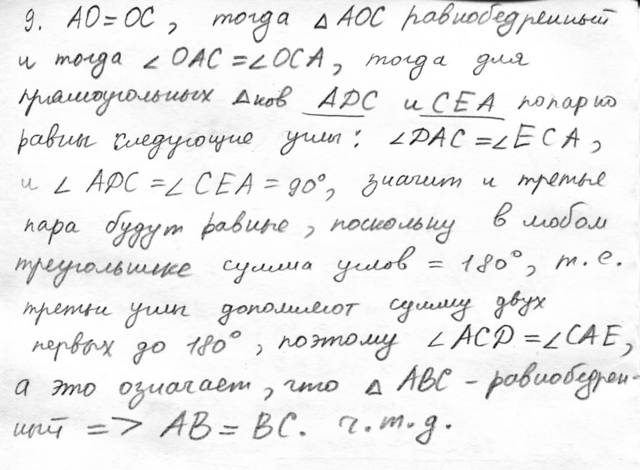 9. AO=OC, тогда △AOC равнобедренный
и тогда ∠OAC=∠OCA, тогда для
прямоугольных △ков ADC и CEA попарно
равны следующие углы: ∠DAC=∠ECA,
и ∠ADC=∠CEA=90°, значит и третьe
пара будут равные, поскольку в любом
треугольнике сумма углов = 180°, т.е.
третьи углы дополняют сумму двух
первых до 180°, поэтому ∠ACD=∠CAE,
а это означает, что △ ABC - равнобедрен-
ный => AB=BC. ч.т.д.